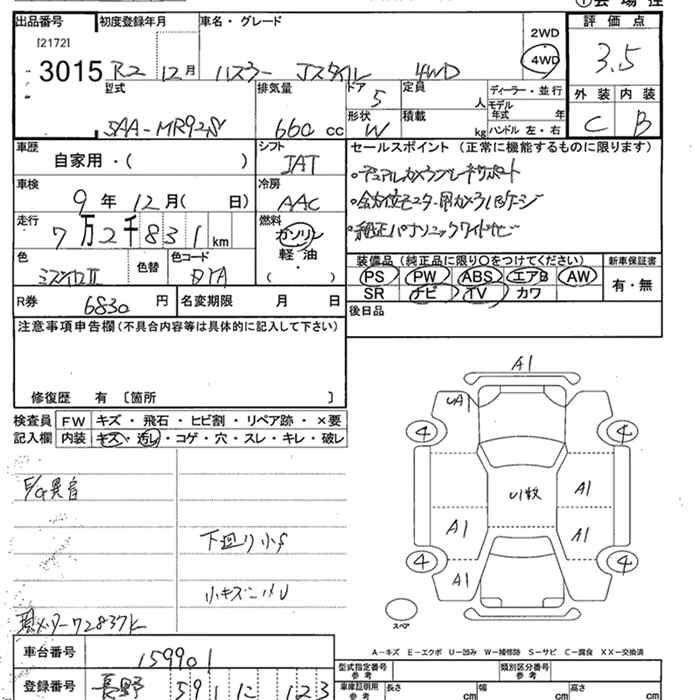 出品番号 初度登録年月 車名・グレード 2WD 評価点
[2172]
3015 R2 12月 ハスラー Jスタイル 4WD 4WD 3.5
型式 排気量 ドア 5 定員 人 ディーラー・並行 外装 内装
モデル年式 年
5AA-MR92S 660cc 形状 W 積載 kg ハンドル 左・右 C B
車歴 シフト セールスポイント(正常に機能するものに限ります)
自家用・( ) IAT ・デュアルカメラブレーキサポート
車検 冷房 ・全方位モニター用カメラPKケージ
9年12月( 日) AAC ・純正パナソニックワイドナビ
走行 燃料
7万2千831km ガソリン
軽油
・( )
色 色替 色コード 装備品(純正品に限り○をつけてください) 新車保証書
PS PW ABS エアB AW 有・無
SR ナビ TV カワ
R券 6830円 名変期限 月 日 後日品
注意事項申告欄(不具合内容等は具体的に記入して下さい)
修復歴 有 [箇所 ]
検査員記入欄 FW キズ・飛石・ヒビ割・リペア跡・×要
内装 キズ・汚レ・コゲ・穴・スレ・キレ・破レ
A1
UA1
4 4
E/G異音 U1枚 A1
A1 A1
下廻り小サ
4 4
小キズ
A1
72837K
スペア
A-キズ E-エクボ U-凹み W-補修跡 S-サビ C-腐食 XX-交換済
車台番号 159901 型式指定番号 参考 類別区分番号 参考
登録番号 長野 591 に 123 車庫証明用 参考 長さ cm 幅 cm 高さ cm